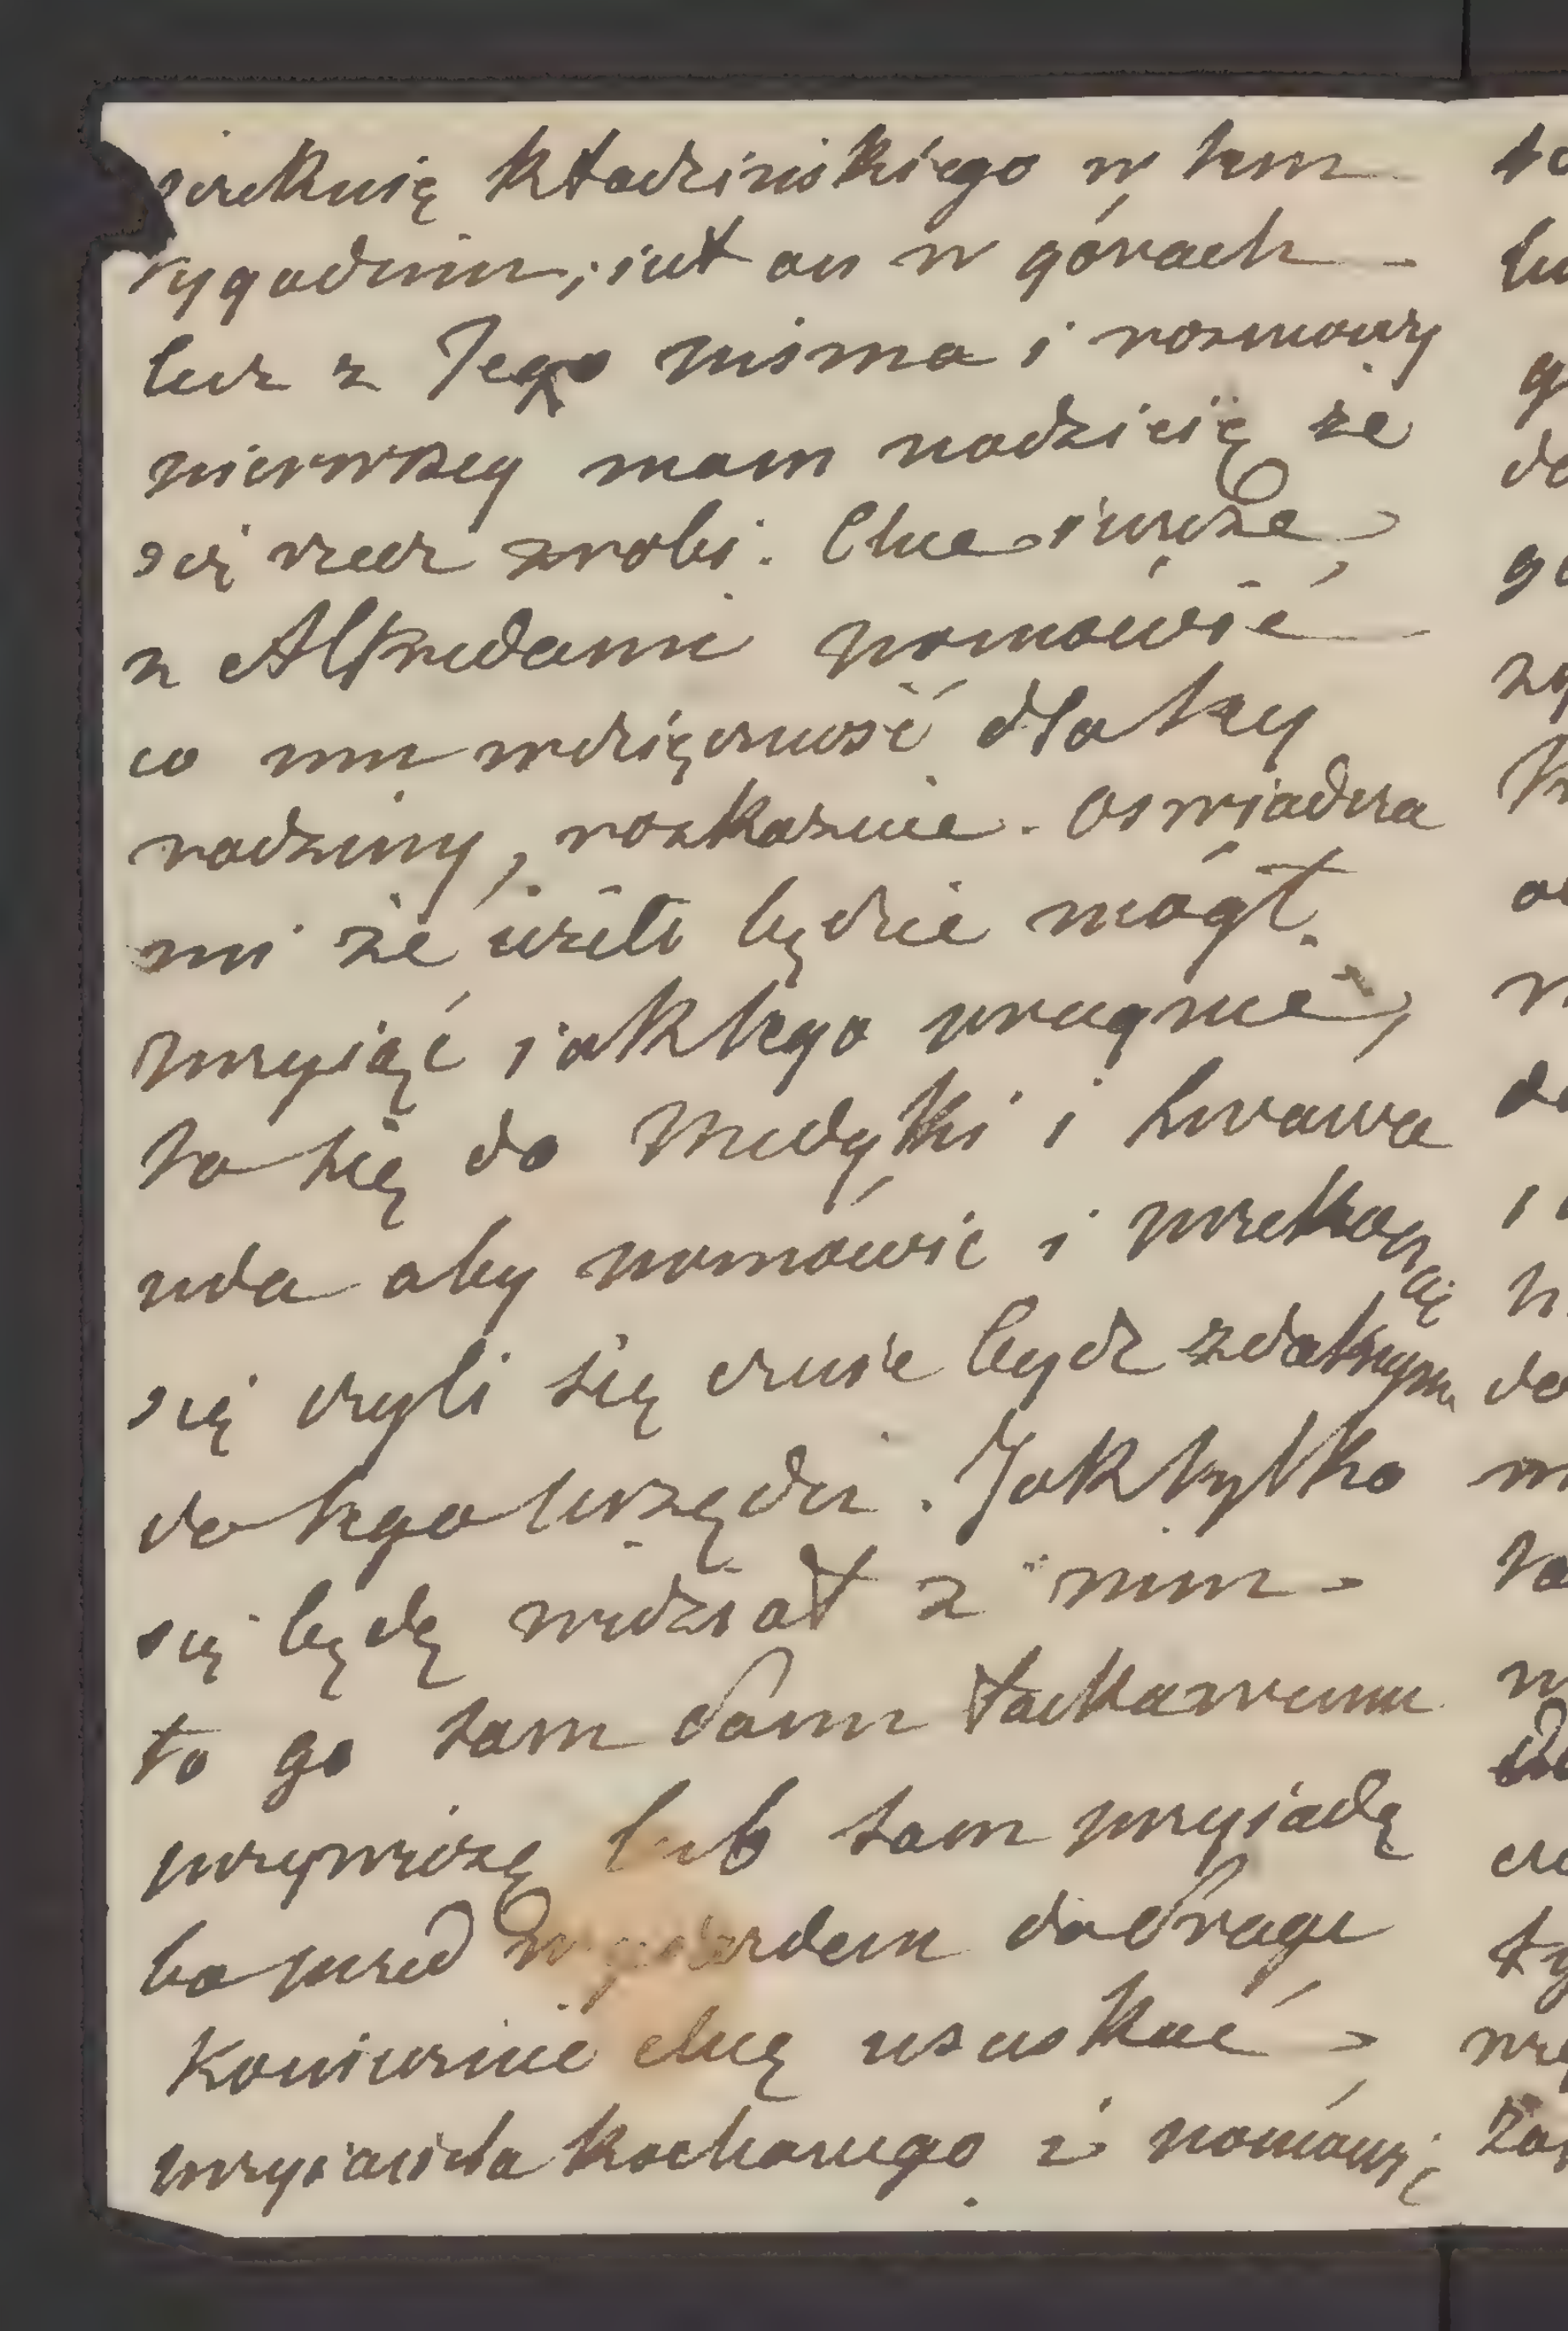 Czekuię Kłodzińskiego w tem
tygodniu, iest on w górach
lecz z Jego pisma i rozmowy
pierwszey mam nadzieię że
się rzecz zrobi. Chce ieszcze,
z Alfredami pomówić
co mu wdzięczność dla tey
rodziny, rozkazuie. Oswiadcza
mi że ieżeli będzie mógł
przyiąć iak tego pragnie,
to się do Medyki i Lwowa
uda aby pomówić i przekonać
się czyli się czuie bydz zdatnym
do tego Urzędu. Jak tylko
się będę widział z nim
to go sam Panu łaskawemu
przywiozę lub sam przyiadę
bo przed wyiazdem do Pragi
koniecznie chcę uściskać,
przyiaciela kochanego i pomówić